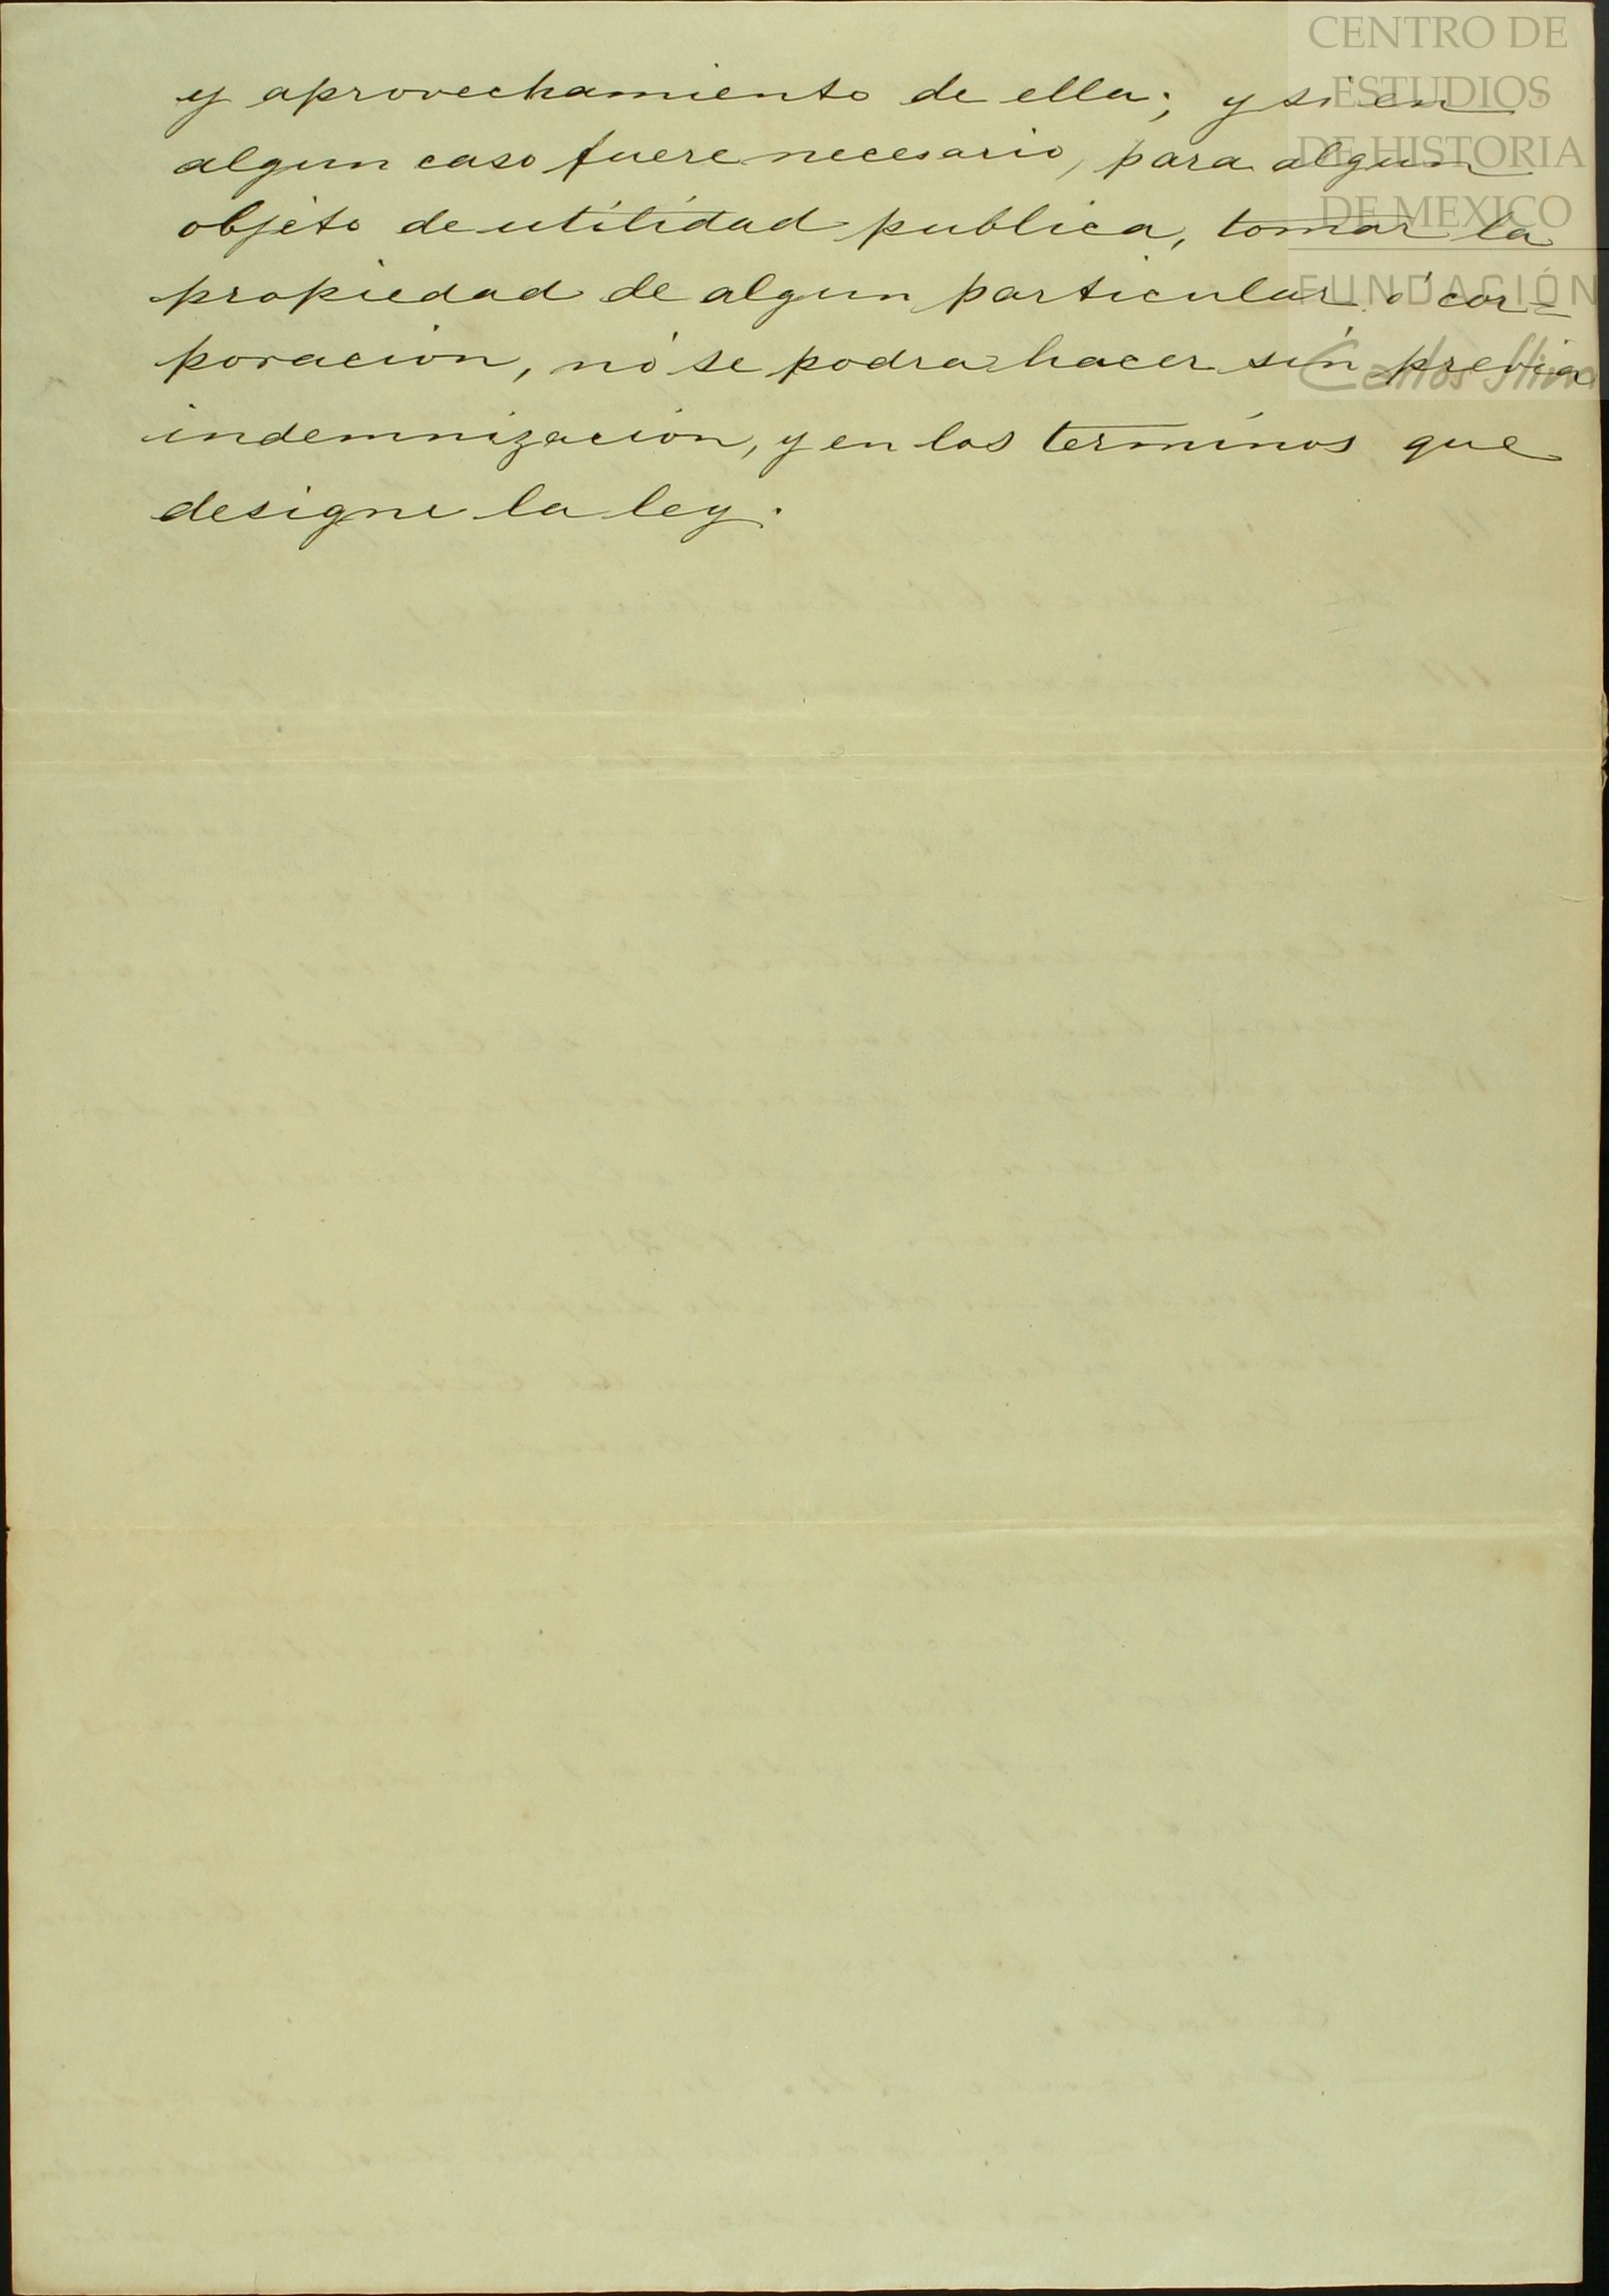 y aprovechamiento de ella; y si en
algun caso fuere necesario, para algun
objeto de utilidad publica, tomar la
propiedad de algun particular ó cor=
poracion, no se podra hacer sin previa
indemnización, y en los terminos que
designe la ley.
CENTRO DE
ESTUDIOS
DE HISTORIA
DE MEXICO
FUNDACIÓN
Carlos Slim